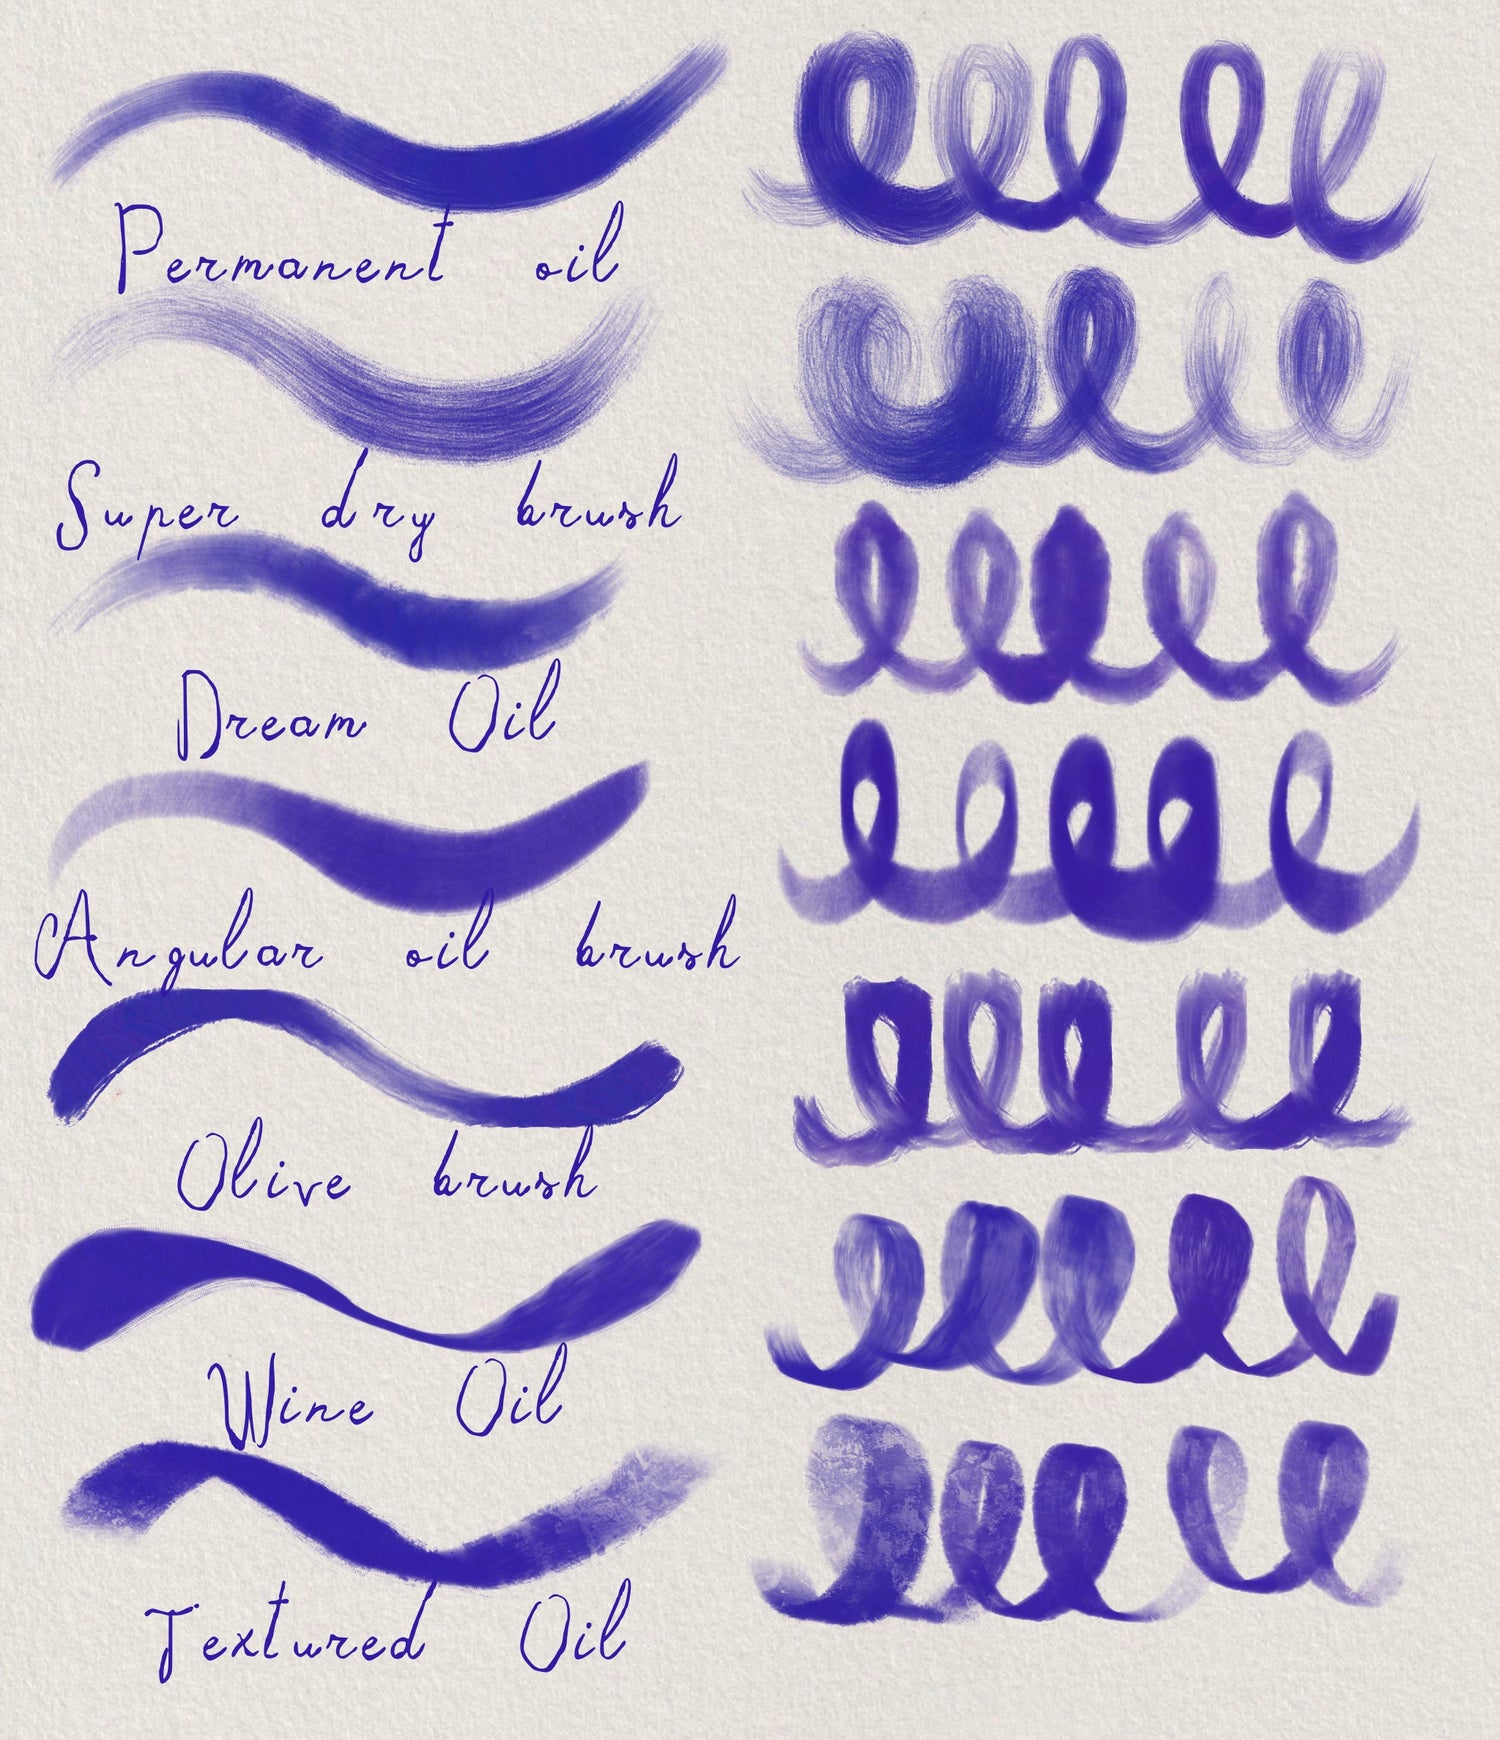 Permanent oil
Super dry brush
Dream Oil
Angular oil brush
Olive brush
Wine Oil
Textured Oil